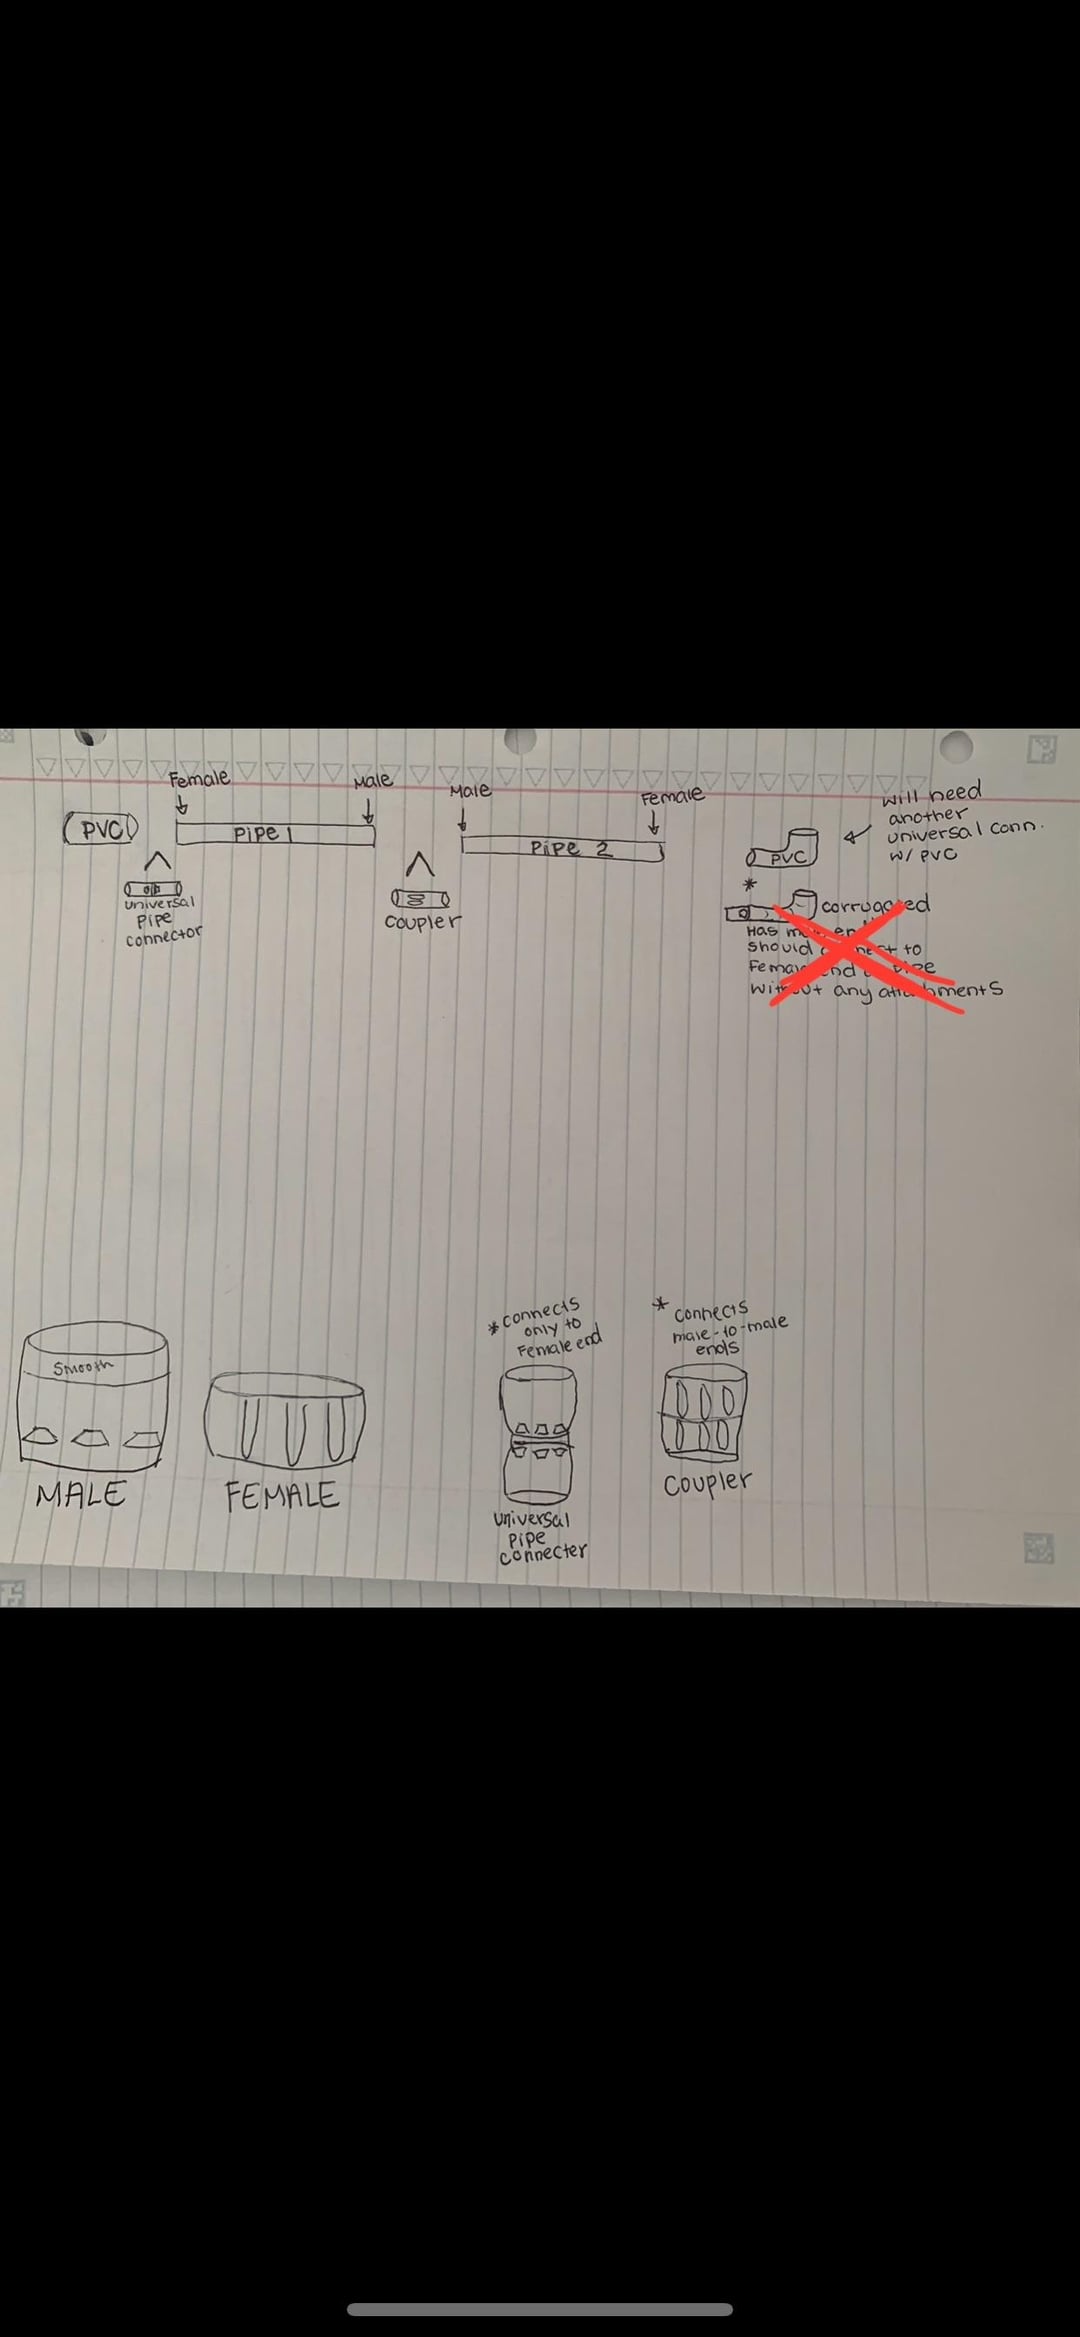 Female
Male
Male
Female
PVC
Pipe 1
Pipe 2
PVC
will need
another
universal conn.
w/ PVC
universal
pipe
connector
coupler
*
corrugated
Has
should to
Female
without any attachments
*connects
only to
Female end
* connects
male-to-male
ends
Smooth
MALE
FEMALE
universal
pipe
connecter
coupler